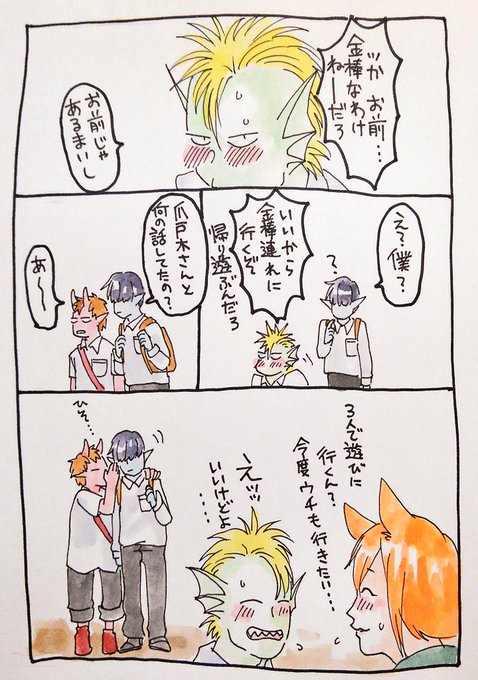 …つか お前…
金棒なわけ
ねーだろ
お前じゃ
あるまいし
え？僕？
？
いいから
金棒連れに
行くぞ
帰り遊ぶんだろ
爪戸木さんと
何の話してたの？
あ〜
3人で遊びに
行くん？
今度ウチも行きたい…
えッッ
いいけどよ
‥‥
ひそ…